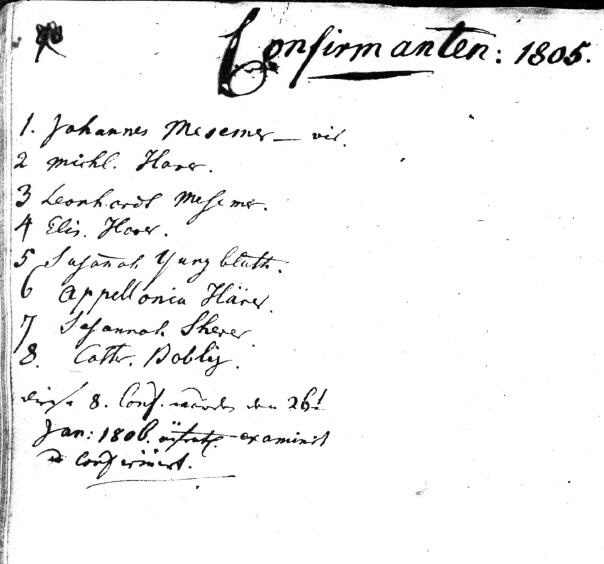 Confirmanten: 1805.
1. Johannes Mesemer — vir.
2 Michl. Harer.
3 Leonhardt Mesemer.
4 Elis. Harer.
5 Susanah Yungbluth.
6 Appellonia Härer.
7 Susannah Sherer
8. Cathr. Boblig.
diese 8. Conf. wurden den 26t
Jan: 1806. examinirt
confirmirt.